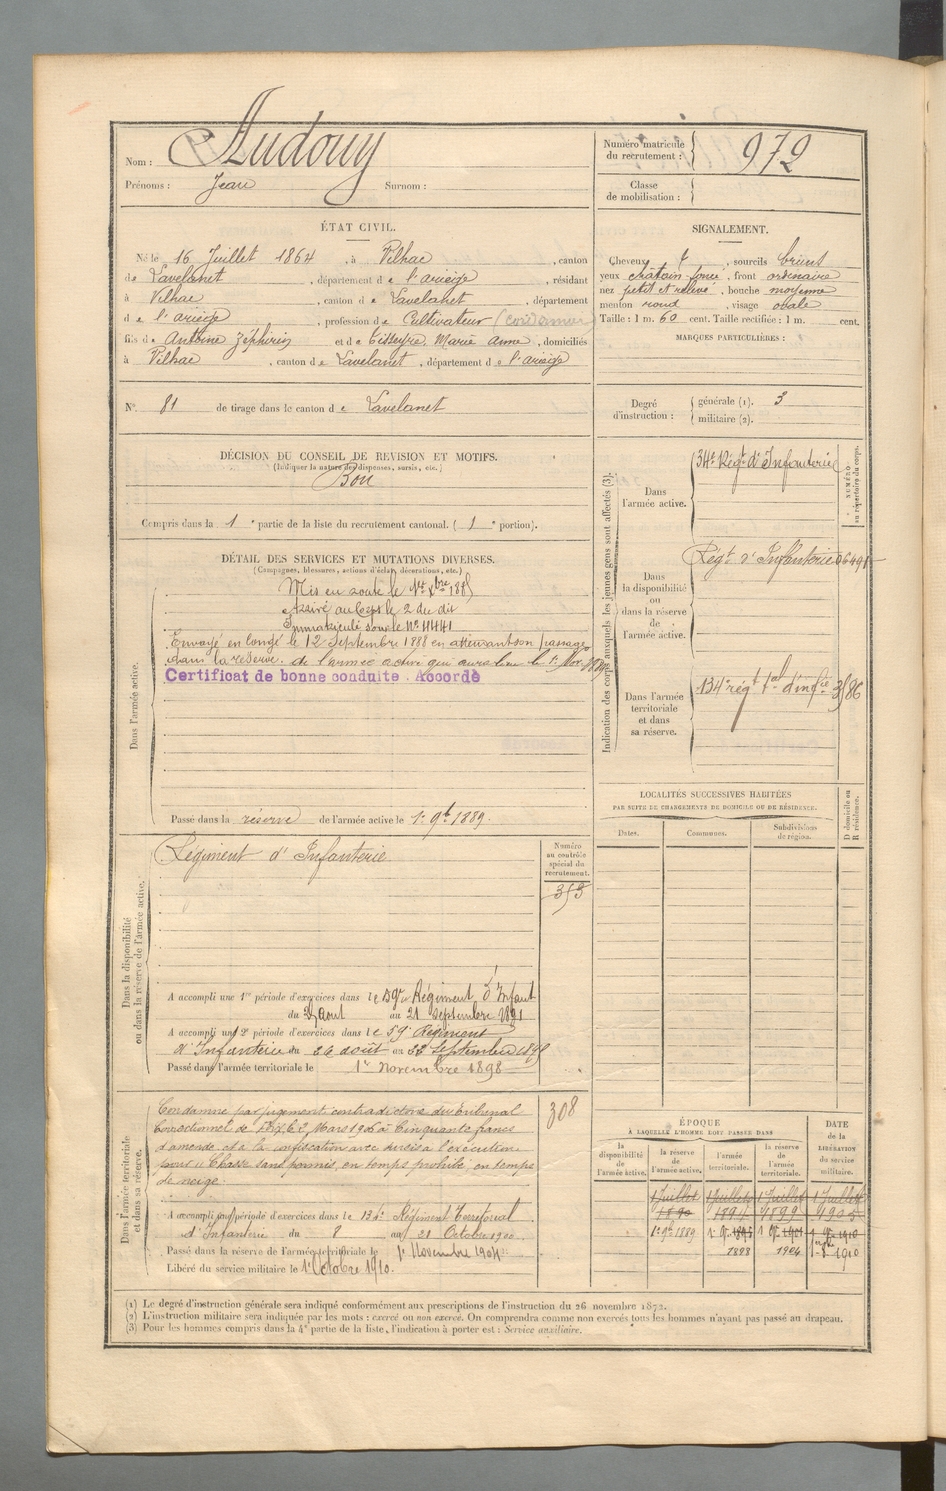 Nom : Audouy
Prénoms : Jean Surnom :
Numéro matricule du recrutement : 972
Classe de mobilisation :
ÉTAT CIVIL.
Né le 16 Juillet 1864, à Vilhac, canton
de Lavelanet, département de l'ariège, résidant
à Vilhac, canton de Lavelanet, département
de l'ariège, profession de Cultivateur
fils de Antoine Zéphirin et de Marie Anne, domiciliés
à Vilhac, canton de Lavelanet, département de l'ariège
N° 81 de tirage dans le canton de Lavelanet
SIGNALEMENT.
Cheveux, sourcils bruns
yeux chatain foncé, front ordinaire
nez petit et relevé, bouche moyenne
menton rond, visage ovale
Taille : 1 m. 60 cent. Taille rectifiée : 1 m. cent.
MARQUES PARTICULIÈRES :
Degré d'instruction : générale (1). 3
militaire (2).
DÉCISION DU CONSEIL DE REVISION ET MOTIFS.
(Indiquer la nature des dispenses, sursis, etc.)
Bon
Compris dans la 1e partie de la liste du recrutement cantonal. (1e portion).
DÉTAIL DES SERVICES ET MUTATIONS DIVERSES.
(Campagnes, blessures, actions d'éclat, décorations, etc.)
Dans l'armée active.
Mis en route le 1er Xbre 1885
Arrivé au Corps le 2 du dit
Immatriculé sous le N° 4441
Envoyé en congé le 12 Septembre 1888 en attendant son passage
dans la réserve de l'armée active qui aura lieu le 1er Nov.
Certificat de bonne conduite. Accordé
Passé dans la réserve de l'armée active le 1er 9bre 1889.
Indication des corps auxquels les jeunes gens sont affectés (3).
NUMÉRO au répertoire du corps.
Dans l'armée active.
34e Régt d'Infanterie
Dans la disponibilité ou dans la réserve de l'armée active.
Régt d'Infanterie
Dans l'armée territoriale et dans sa réserve.
134e régt tal d'infie
LOCALITÉS SUCCESSIVES HABITÉES
PAR SUITE DE CHANGEMENTS DE DOMICILE OU DE RÉSIDENCE.
Dates. Communes. Subdivisions de région. D domicile ou R résidence.
Dans la disponibilité ou dans la réserve de l'armée active.
Régiment d'Infanterie
Numéro au contrôle spécial du recrutement.
353
A accompli une 1re période d'exercices dans le 59e Régiment d'Infant
du 25 Aout au 21 septembre 1891
A accompli une 2e période d'exercices dans le 59e Régiment
d'Infanterie du 26 août au 22 Septembre
Passé dans l'armée territoriale le 1er novembre 1898
Dans l'armée territoriale et dans sa réserve.
308
Condamné par jugement contradictoire du tribunal
Correctionnel de Foix le 2 Mars 1906 à Cinquante francs
d'amende et à la confiscation avec sursis à l'exécution
pour « Chasse sans permis en temps prohibé en temps
de neige.
A accompli une période d'exercices dans le 134e Régiment Territorial
d'Infanterie du 8 au 21 Octobre 1900
Passé dans la réserve de l'armée territoriale le 1er Novembre 1904
Libéré du service militaire le 1er Octobre 1910.
ÉPOQUE
À LAQUELLE L'HOMME DOIT PASSER DANS
DATE de la LIBÉRATION du service militaire.
la disponibilité de l'armée active. la réserve de l'armée active. l'armée territoriale. la réserve de l'armée territoriale.
1 Juillet 1 Juillet 1 Juillet 1 Juillet
1890 1894 1899 1905
1er 9bre 1889
1898 1904 1910
(1) Le degré d'instruction générale sera indiqué conformément aux prescriptions de l'instruction du 26 novembre 1872.
(2) L'instruction militaire sera indiquée par les mots : exercé ou non exercé. On comprendra comme non exercés tous les hommes n'ayant pas passé au drapeau.
(3) Pour les hommes compris dans la 4e partie de la liste, l'indication à porter est : Service auxiliaire.